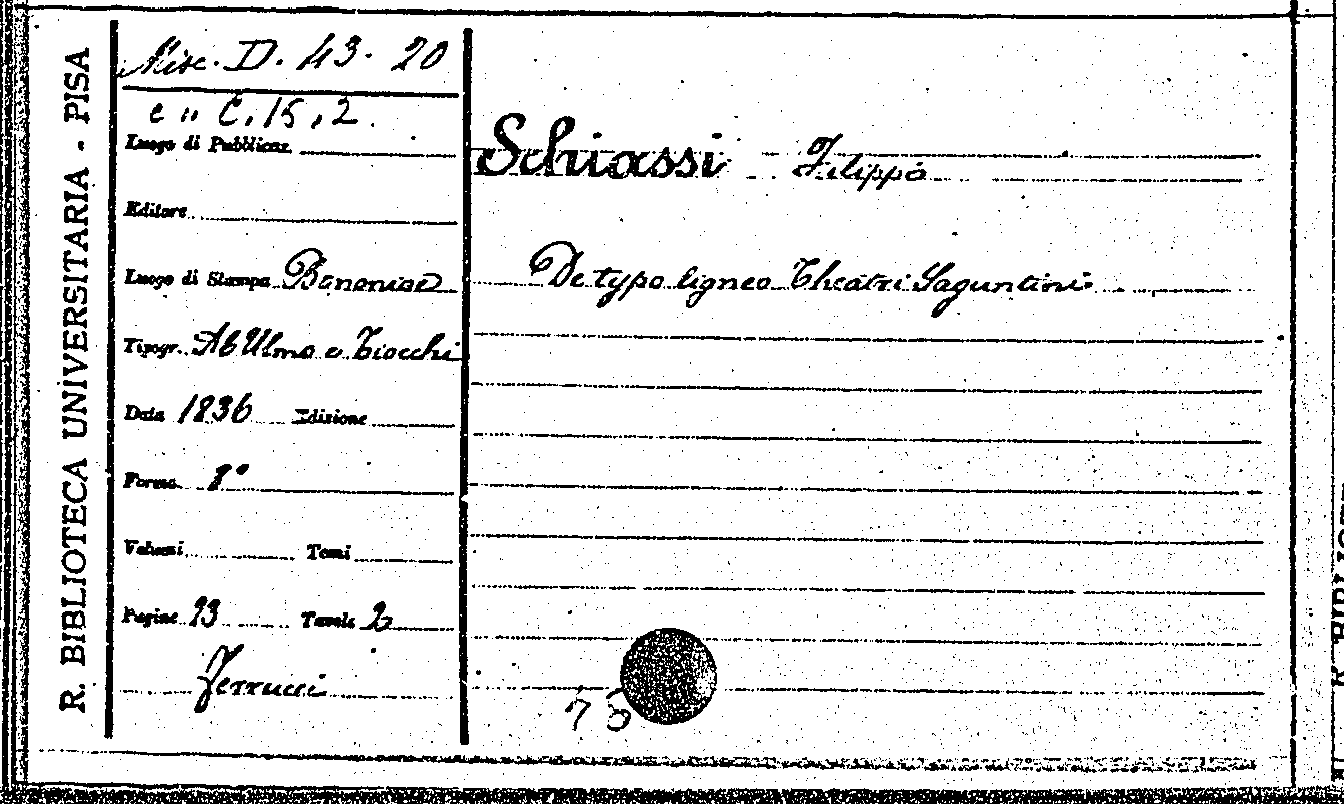 R. BIBLIOTECA UNIVERSITARIA - PISA
Misc. D. 43. 20
e " C. 15, 2.
Luogo di Pubblicaz.
Editore
Luogo di Stampa Bononiae
Tipogr. Ab Ulmo e Tiocchi
Data 1836 Edizione
Forma 8°
Volumi Tomi
Pagine 23 Tavole 2
Ferrucci
Schiassi Filippo
De typo ligneo Theatri Saguntini
75